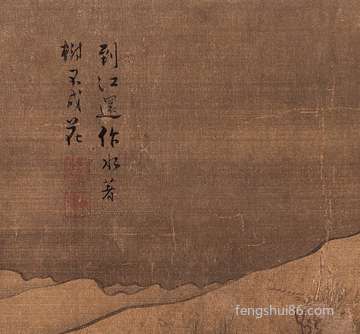 到江還作水著
樹不成花
fengshui86.com